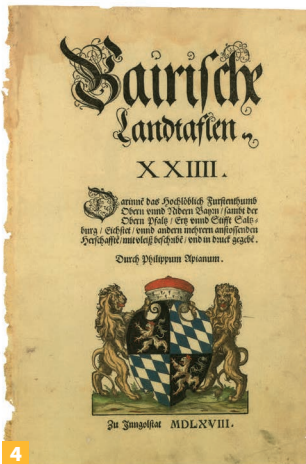 Bairische
Landtaflen.
XXIIII.
Darinnẽ das Hochlöblich Furstenthumb
Obern vnnd Nidern Bayrn / sambt der
Obern Pfaltz / Ertz vnnd Stifft Saltz-
burg / Eichstet / vnnd andern mehrern anstossenden
Herschafftẽ / mit vleiß beschribẽ / vnd in druck gegebẽ.
Durch Philippum Apianum.
Zu Inngolstat MDLXVIII.
4